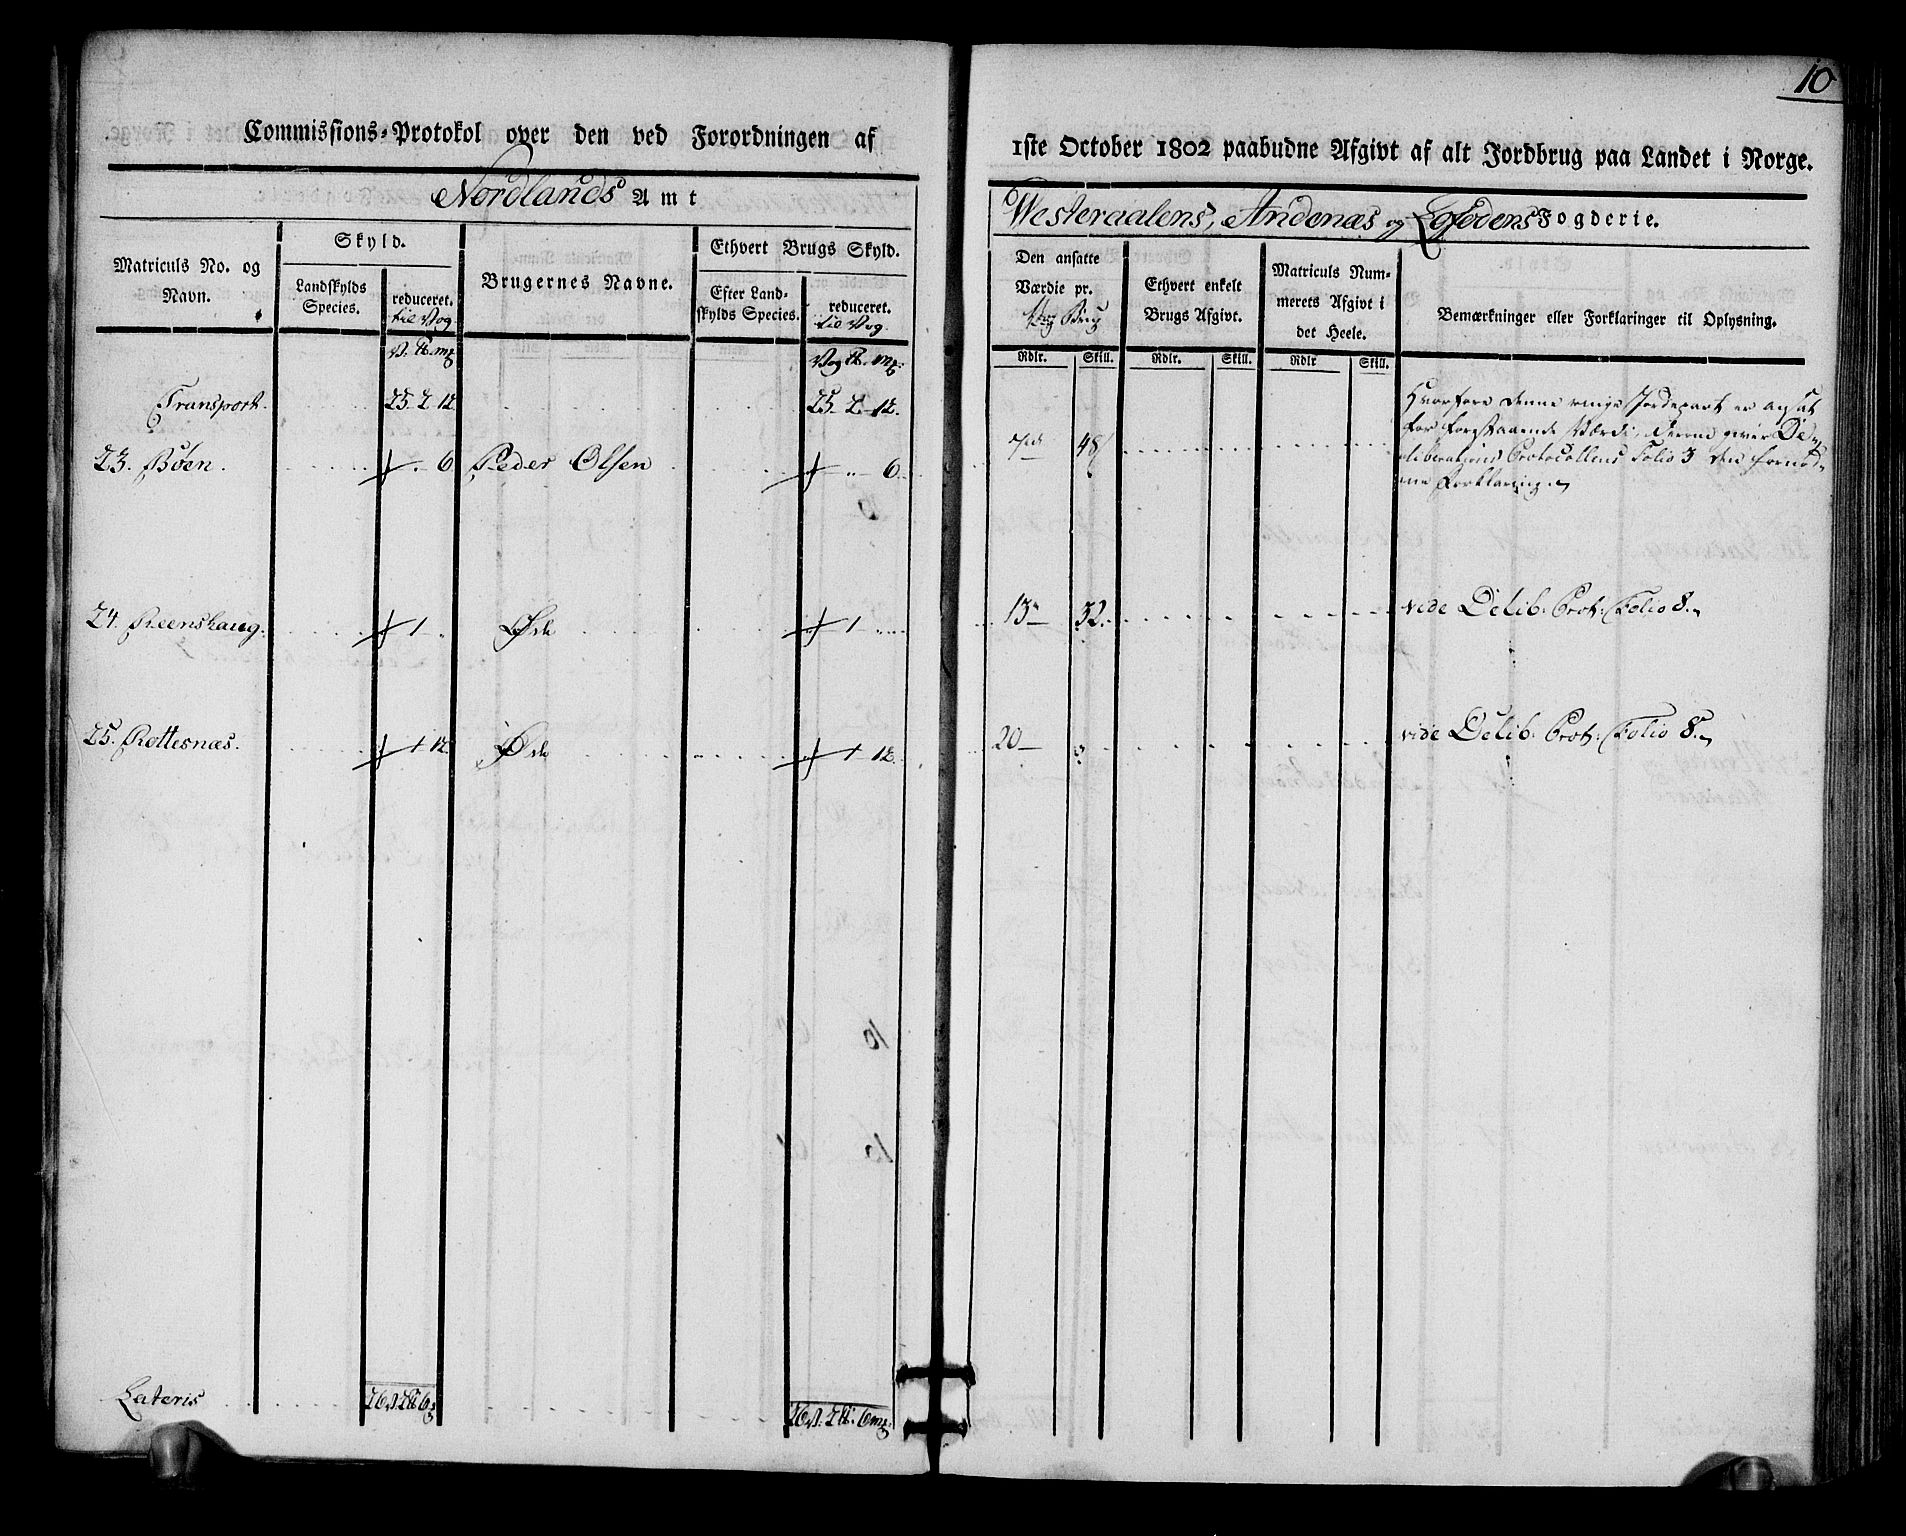 10
Commissions-Protokol over den ved Forordningen af
1ste October 1802 paabudne Afgivt af alt Jordbrug paa Landet i Norge.
Nordlands Amt
Westeraalens, Andenæs og Lofodens Fogderie.
Matriculs No. og Navn.
Skyld.
Landskylds Species.
reduceret. til Vog
Brugernes Navne.
Ethvert Brugs Skyld.
Efter Landskylds Species.
reduceret. til Vog
Den ansatte Værdie pr.
Ethvert enkelt Brugs Afgivt.
Matriculs Nummerets Afgivt i det Heele.
Bemærkninger eller Forklaringer til Oplysning.
Rdlr. Skill. Rdlr. Skill. Rdlr Skill.
Transport. 25. 2 12 25. 2 - 12.
23. Bøen. 6 Peder Olsen 6. 7 48
Hvorfore denne ringe Jordepart er ansat
for forestaaende Værdi, derom giver De-
liberations Protocollens Folio 3 den fornød-
ne Forklaring
24. Reenshaug. 1 Øde 1 13 32. vide Delib: Prot: Folio 8.
25. Rottesnæs. 1 12 Øde 1 - 12. 20 vide Delib: Prot: Folio 8.
Lateris 26 2 6 26 2 6